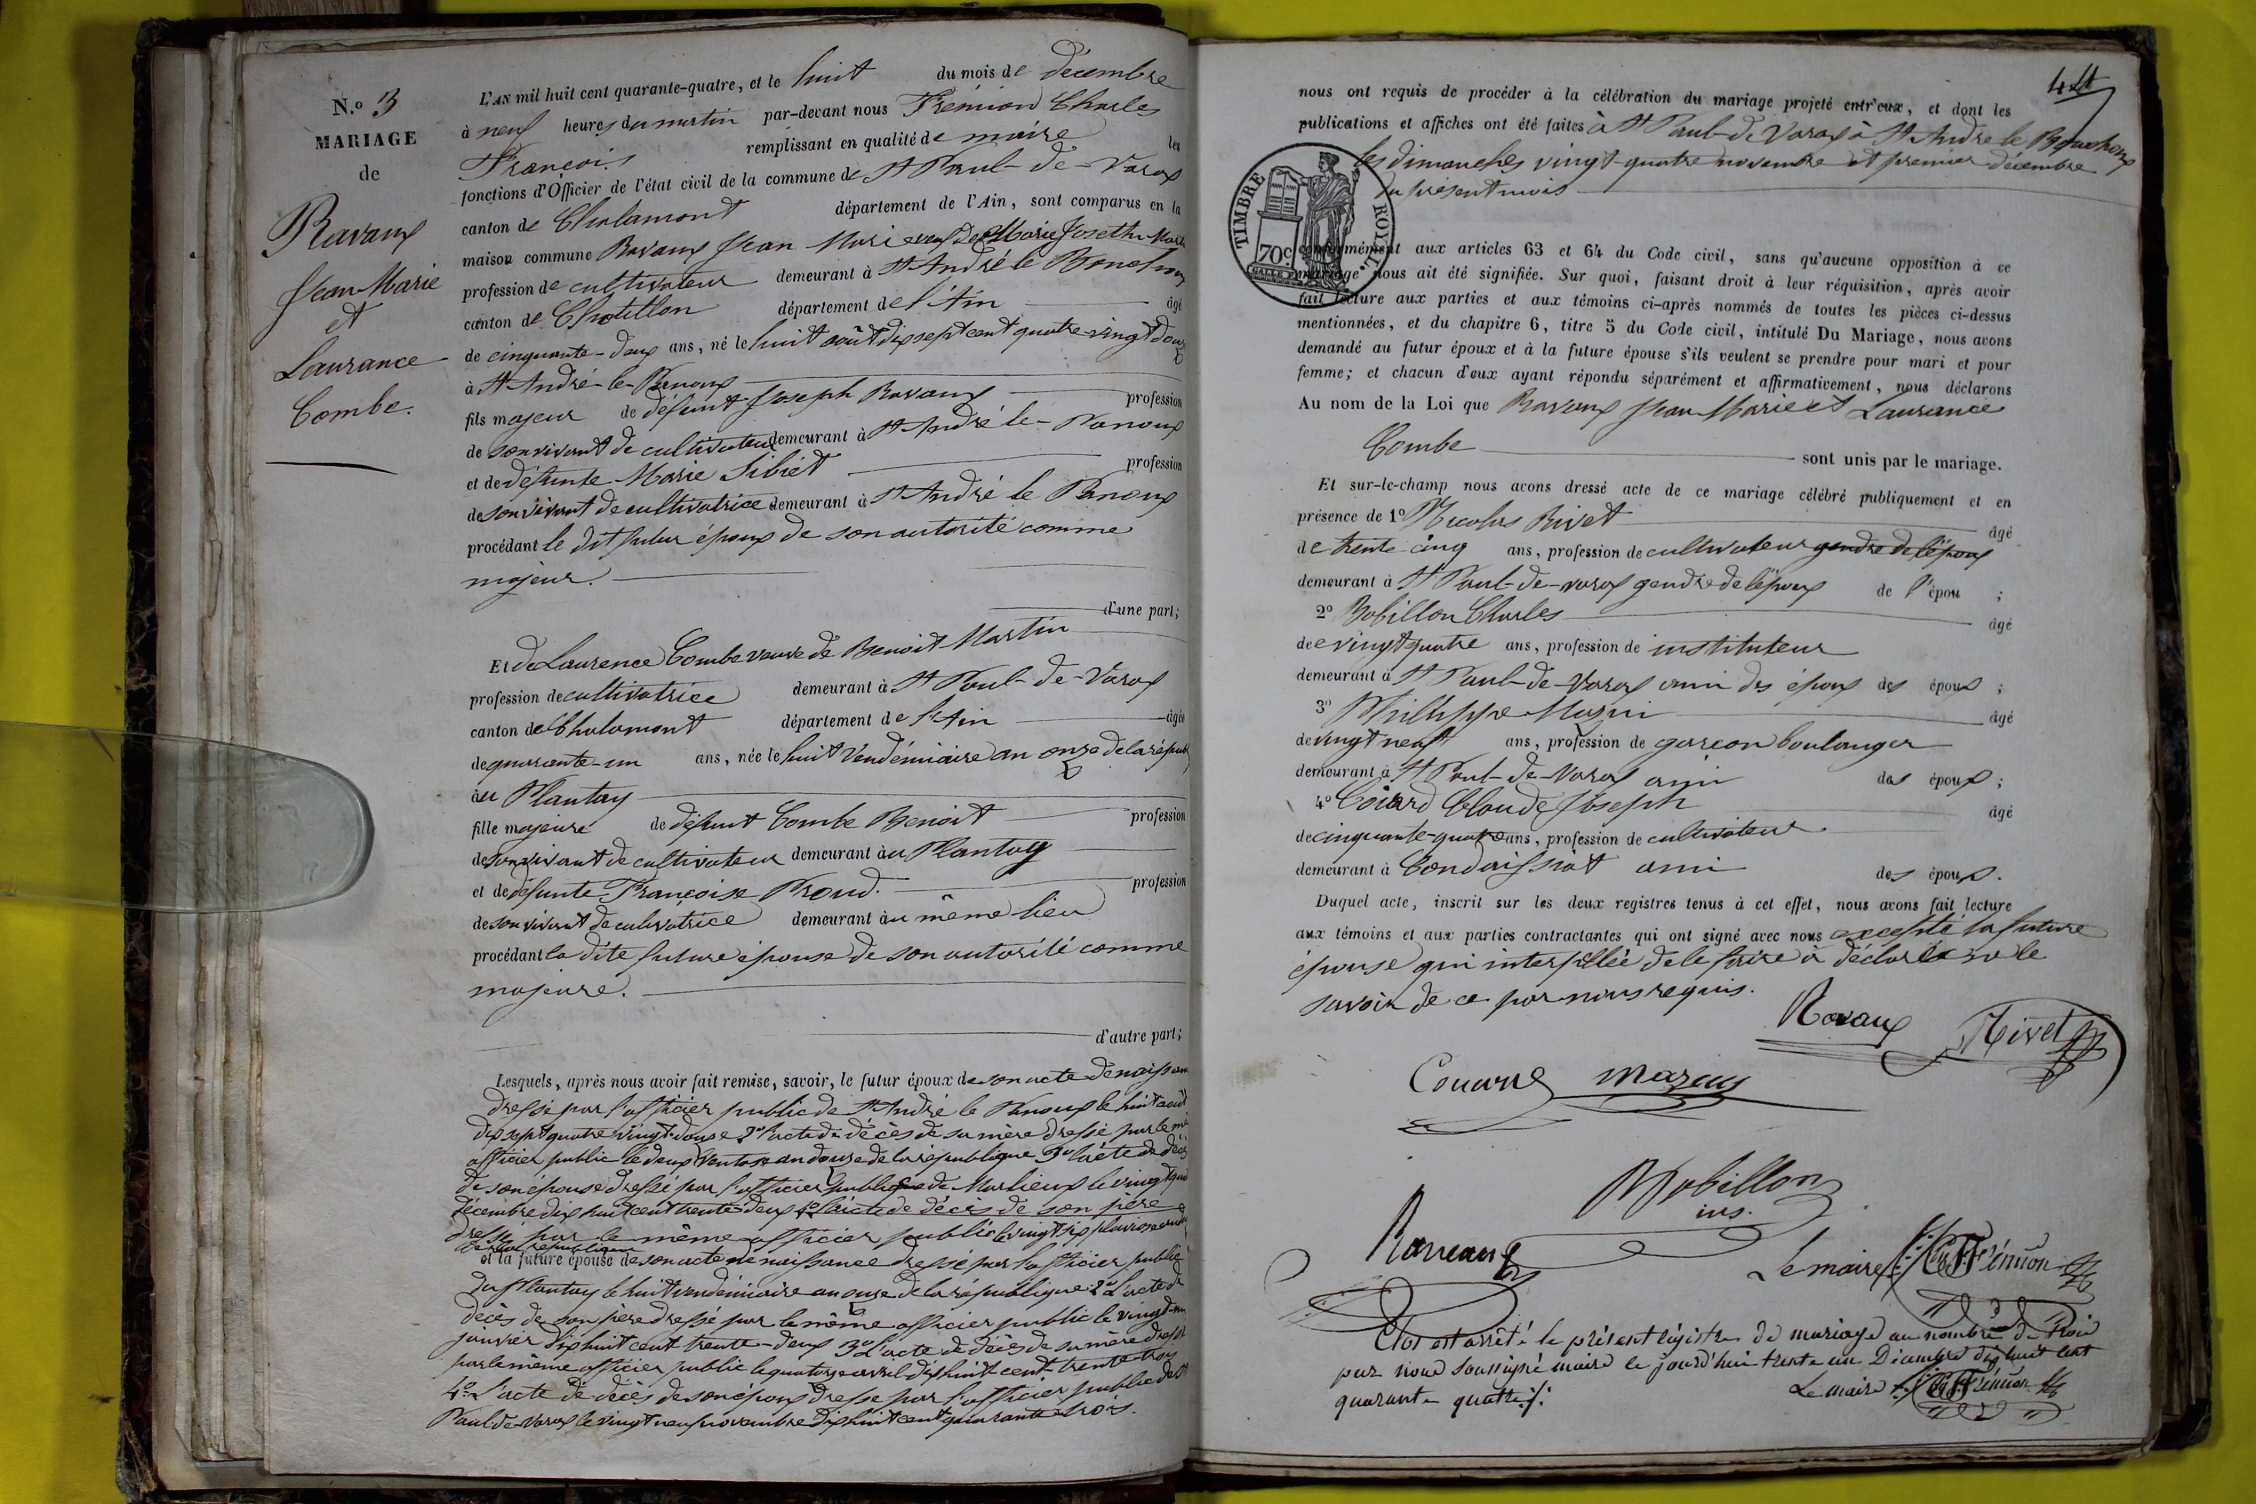 N.o 3
MARIAGE
de
Ravaux
Jean Marie
et
Laurance
Combe.
L'AN mil huit cent quarante-quatre, et le huit du mois de décembre
à neuf heures du matin par-devant nous Frémion Charles
François remplissant en qualité de maire les
fonctions d'Officier de l'état civil de la commune de St Paul-de-Varax
canton de Chalamont département de l'Ain, sont comparus en la
maison commune Ravaux Jean Marie veuf de Marie Josette
profession de cultivateur demeurant à St André le Bouchoux
canton de Chatillon département de l'Ain âgé
de cinquante-deux ans, né le huit août dix sept cent quatre-vingt douze
à St André-le-Panoux
fils majeur de défunt Joseph Ravaux profession
de son vivant de cultivateur demeurant à St André le-Panoux
et de défunte Marie Sibiet profession
de son vivant de cultivatrice demeurant à St André le Panoux
procédant le dit futur époux de son autorité comme
majeur.
d'une part;
Et de Laurence Combe veuve de Benoit Martin
profession de cultivatrice demeurant à St Paul-de-Varax
canton de Chalamont département de l'Ain âgée
de quarante-un ans, née le huit Vendémiaire an onze de la républ
au Plantay
fille majeure de défunt Combe Benoit profession
de son vivant de cultivateur demeurant au Plantay
et de défunte Françoise Proud. profession
de son vivant de cultivatrice demeurant au même lieu
procédant la dite future épouse de son autorité comme
majeure.
d'autre part;
Lesquels, après nous avoir fait remise, savoir, le futur époux de son acte de naissance
dressé par l'officier public de St André le Panoux le huit août
dix sept quatre vingt-douze 2o l'acte de décès de sa mère dressé par le même
officier public le deux Ventose an douze de la république 3o l'acte de décès
de son épouse dressé par l'officier public de Marlieux le vingt
décembre dix huit cent trente-deux 4o l'acte de décès de son père
dressé par le même officier public le vingt six pluviose
de la république
et la future épouse de son acte de naissance dressé par l'officier public
du Plantay le huit vendémiaire an onze de la république 2o L'acte de
décès de son père dressé par le même officier public le vingt-un
janvier dix huit cent trente-deux 3o L'acte de décès de sa mère dressé
par le même officier public le quatorze avril dix huit cent trente trois
4o L'acte de décès de son époux dressé par l'officier public de St
Paul-de-Varax le vingt neuf novembre dix huit cent quarante trois.
44
nous ont requis de procéder à la célébration du mariage projeté entr'eux, et dont les
publications et affiches ont été faites à St Paul-de Varax à St André le Bouchoux
les dimanches vingt-quatre novembre et premier décembre
du présent mois
TIMBRE ROYAL.
70c.
conformément aux articles 63 et 64 du Code civil, sans qu'aucune opposition à ce
mariage nous ait été signifiée. Sur quoi, faisant droit à leur réquisition, après avoir
fait lecture aux parties et aux témoins ci-après nommés de toutes les pièces ci-dessus
mentionnées, et du chapitre 6, titre 5 du Code civil, intitulé Du Mariage, nous avons
demandé au futur époux et à la future épouse s'ils veulent se prendre pour mari et pour
femme; et chacun d'eux ayant répondu séparément et affirmativement, nous déclarons
Au nom de la Loi que Ravaux Jean Marie et Laurance
Combe sont unis par le mariage.
Et sur-le-champ nous avons dressé acte de ce mariage célébré publiquement et en
présence de 1o Nicolas Rivet âgé
de trente cinq ans, profession de cultivateur gendre de l'époux
demeurant à St Paul-de-varax gendre de l'époux de l'épou ;
2o Bobillon Charles âgé
de vingt quatre ans, profession de instituteur
demeurant à St Paul-de-Varax ami des époux des époux ;
3o Philippe Mazui âgé
de vingt neuf ans, profession de garçon boulanger
demeurant à St Paul-de-Varax ami des époux ;
4o Claude Joseph âgé
de cinquante-quatre ans, profession de cultivateur
demeurant à Condaissiat ami des époux.
Duquel acte, inscrit sur les deux registres tenus à cet effet, nous avons fait lecture
aux témoins et aux parties contractantes qui ont signé avec nous excepté la future
épouse qui interpellée de le faire à déclaré ne le
savoir de ce par nous requis.
Ravaux Rivet
Bobillon
ins.
Le maire Frémion
Clos et arrêté le présent régistre de mariage au nombre de trois
par nous soussigné maire le jourd'hui trente un Décembre dix huit cent
quarante quatre
Le maire Frémion